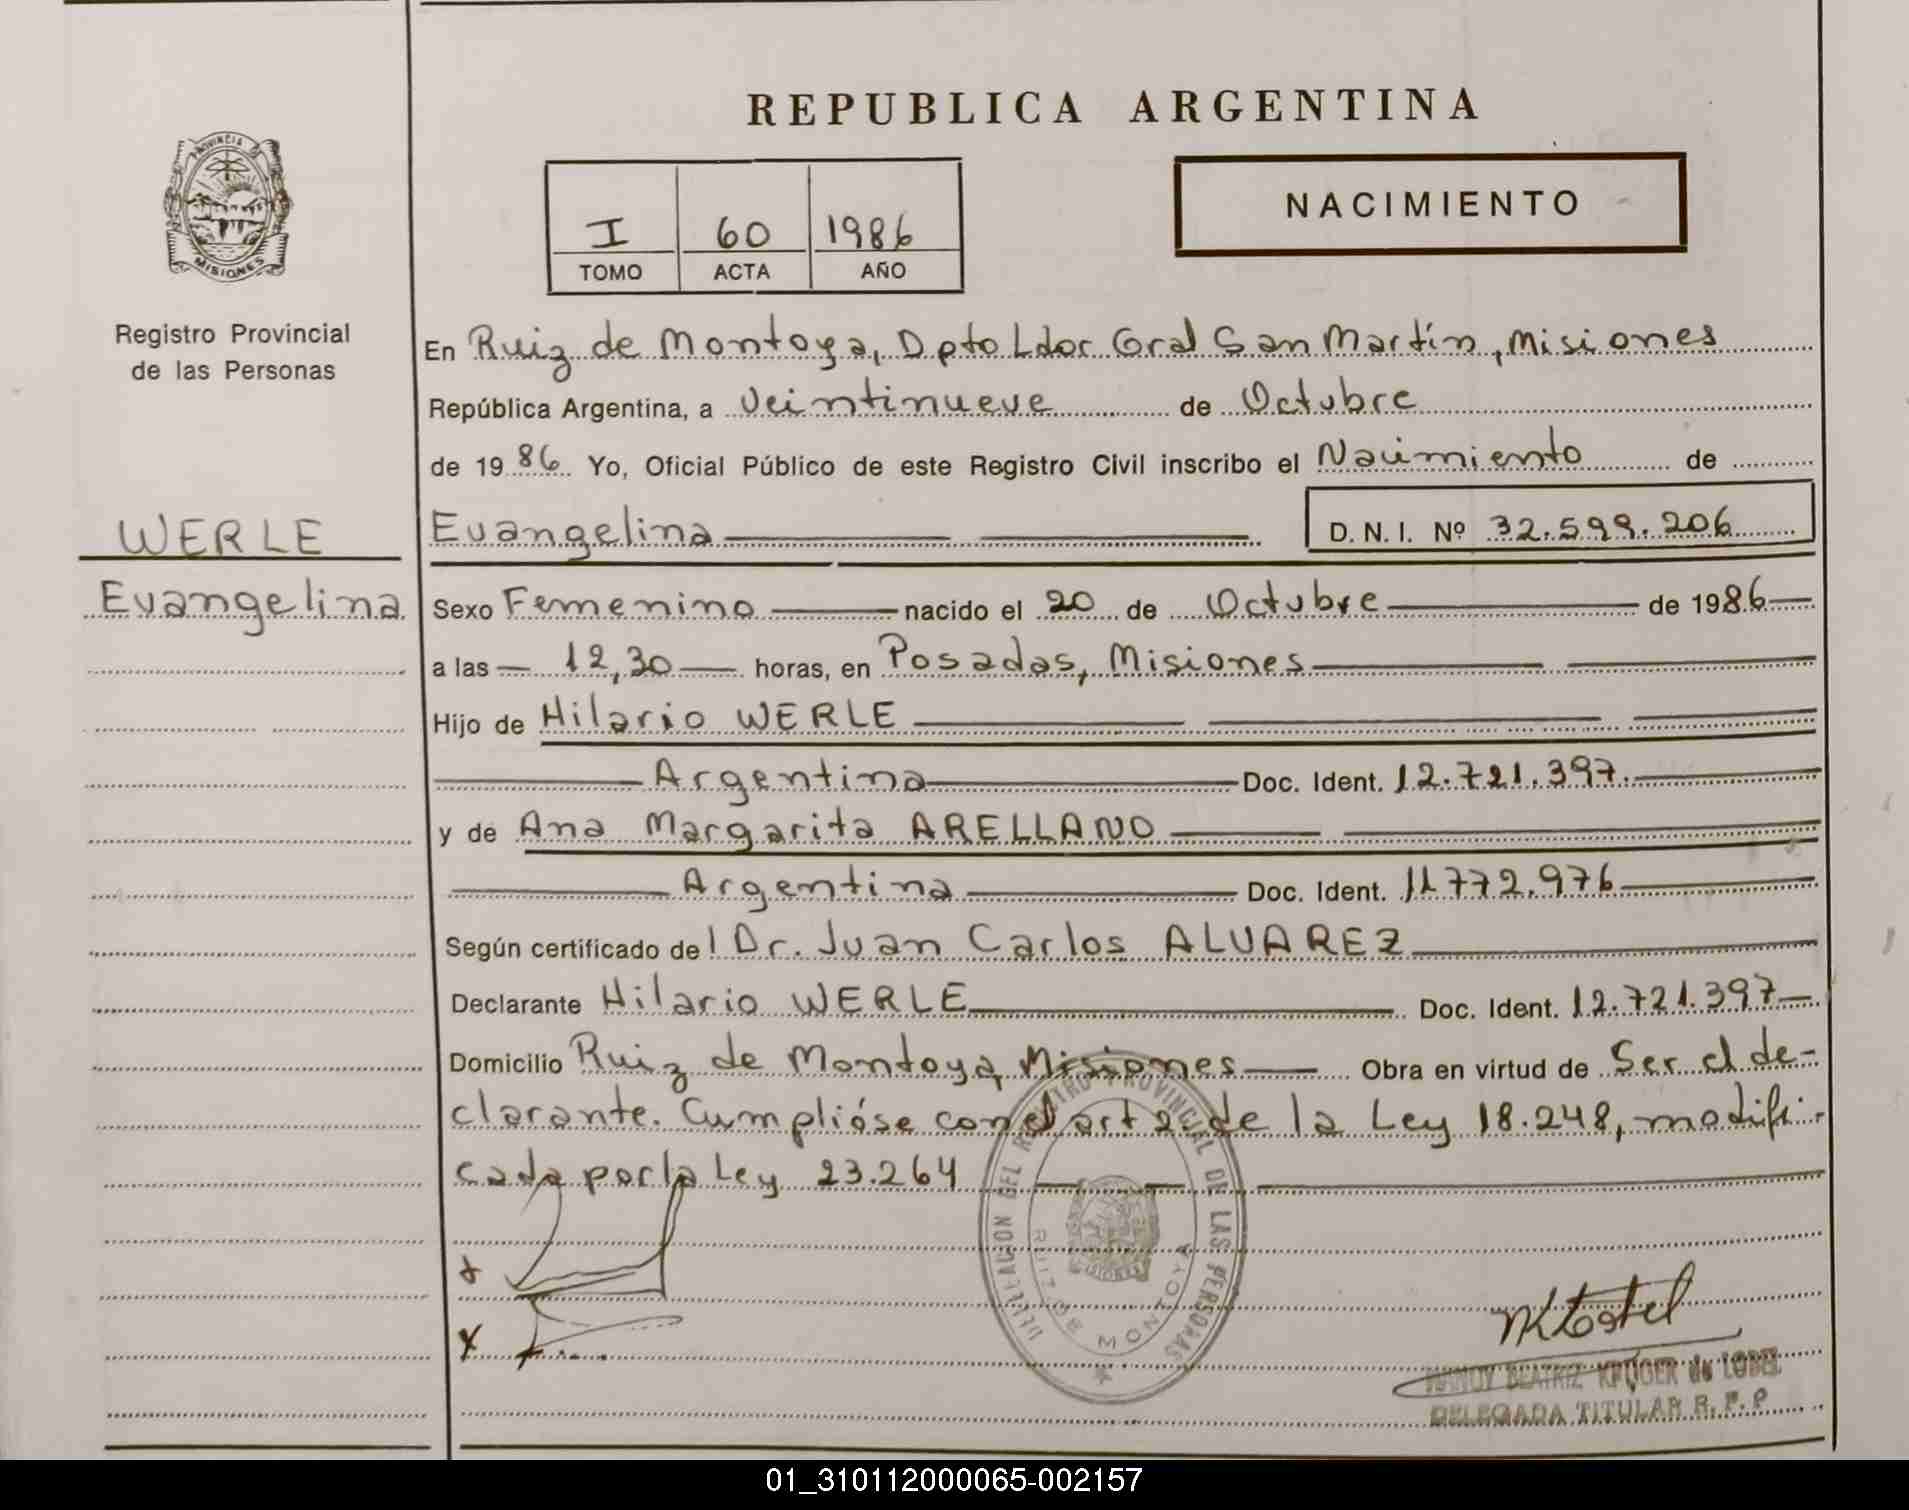 REPUBLICA ARGENTINA
PROVINCIA DE
MISIONES
Registro Provincial
de las Personas
I 60 1986
TOMO ACTA AÑO
NACIMIENTO
En Ruiz de Montoya, Dpto Ldor Gral San Martín, Misiones
República Argentina, a Veintinueve de Octubre
de 1986. Yo, Oficial Público de este Registro Civil inscribo el Nacimiento de
WERLE
Evangelina
Evangelina
D. N. I. Nº 32.599.206
Sexo Femenino nacido el 20 de Octubre de 1986
a las 12,30 horas, en Posadas, Misiones
Hijo de Hilario WERLE
Argentina Doc. Ident. 12.721.397.
y de Ana Margarita ARELLANO
Argentina Doc. Ident. 11.772.976
Según certificado del Dr. Juan Carlos ALVAREZ
Declarante Hilario WERLE Doc. Ident. 12.721.397
Domicilio Ruiz de Montoya, Misiones Obra en virtud de Ser el de-
clarante. Cumplióse con el art 2 de la Ley 18.248, modifi-
cada por la Ley 23.264
DELEGACION DEL REGISTRO PROVINCIAL DE LAS PERSONAS
RUIZ DE MONTOYA
MISIONES
BEATRIZ KRUGER de
DELEGADA TITULAR R. P. P
01_310112000065-002157